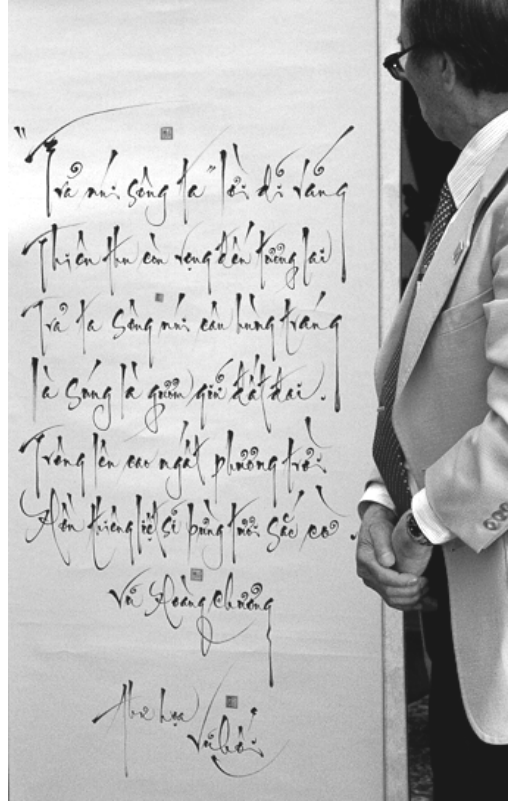 "Trả núi sông ta" lời dĩ vãng
Thiên thu còn vọng đến tương lai
Trả ta sông núi câu hùng tráng
là súng là gươm giữ đất đai.
Trông lên cao ngất phương trời
Hồn thiêng liệt sĩ bừng tươi sắc cờ.
Vũ Hoàng Chương
Thư họa
Vũ Hối